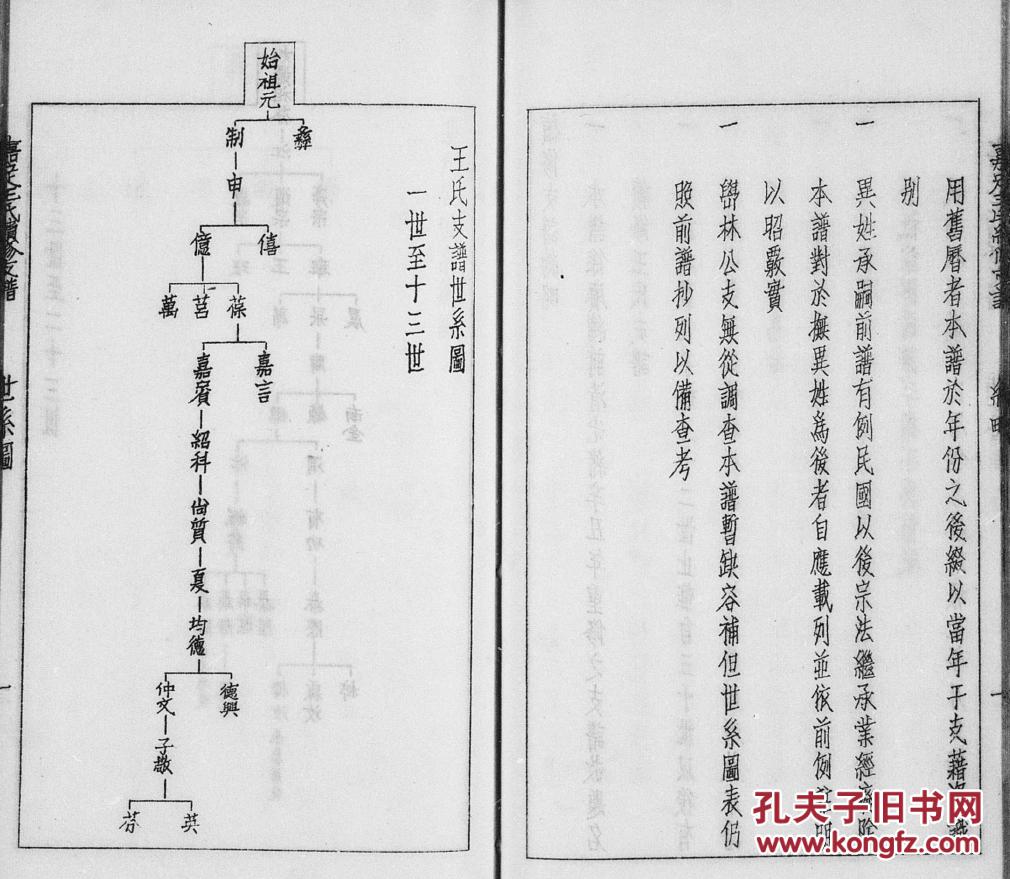 用舊曆者本譜於年份之後綴以當年干支藉資識
别
一 異姓承嗣前譜有例民國以後宗法繼承業經廢除
本譜對於撫異姓為後者自應載列並依前例註明
以昭覈實
一 嶨林公支無從調查本譜暫缺容補但世系圖表仍
照前譜抄列以備查考
王氏支譜世系圖
一世至十三世
始祖元
彝
制
申
僖
億
葆
莒
萬
嘉言
嘉賓
紹科
尚質
夏
均德
德興
仲文
子敬
英
芬
嘉定王氏續修支譜
世系圖
一
孔夫子旧书网
www.kongfz.com